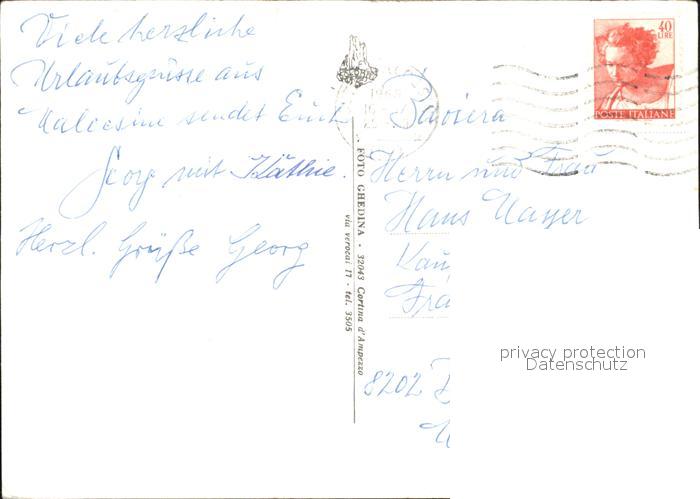 Viele herzliche
Urlaubsgrüsse aus
Malcesine sendet Euch
Georg mit Käthie.
Herzl. Grüße Georg
FOTO GHEDINA - 32043 Cortina d'Ampezzo
via verozai 17 - tel. 3505
40
LIRE
POSTE ITALIANE
Baviera
Herrn und Frau
Hans
8202
privacy protection
Datenschutz